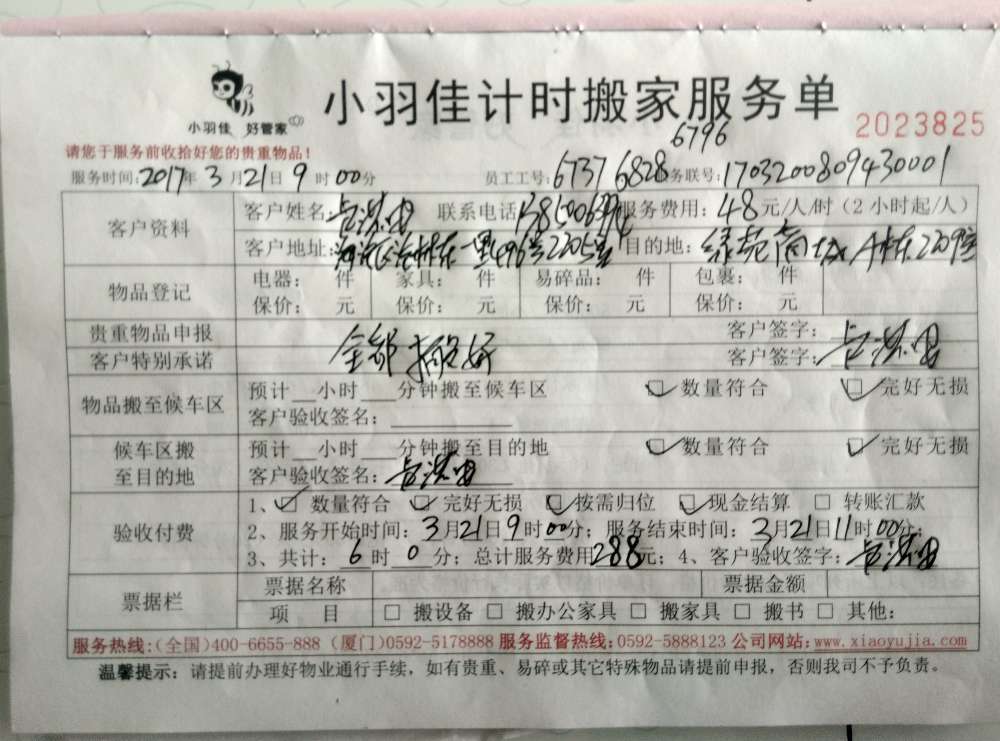 小羽佳 好管家
小羽佳计时搬家服务单
2023825
请您于服务前收拾好您的贵重物品！
6796
服务时间：2017年3月21日9时00分 员工工号：6737 6828 务联号：1703200809430001
客户资料
客户姓名： 联系电话 服务费用：48元/人/时（2小时起/人）
客户地址： 2205室 目的地：绿苑商城A栋2209室
物品登记
电器： 件 家具： 件 易碎品： 件 包裹： 件
保价： 元 保价： 元 保价： 元 保价： 元
贵重物品申报 客户签字：
客户特别承诺 全部搬好 客户签字：
物品搬至候车区
预计__小时__分钟搬至候车区 ☑ 数量符合 ☑ 完好无损
客户验收签名：
候车区搬至目的地
预计__小时__分钟搬至目的地 ☑ 数量符合 ☑ 完好无损
客户验收签名：
验收付费
1、☑ 数量符合 ☑ 完好无损 ☑ 按需归位 ☑ 现金结算 □ 转账汇款
2、服务开始时间：3月21日9时00分；服务结束时间：3月21日11时00分；
3、共计：6时0分；总计服务费用288元；4、客户验收签字：
票据栏
票据名称 票据金额
项 目 □ 搬设备 □ 搬办公家具 □ 搬家具 □ 搬书 □ 其他：
服务热线：(全国)400-6655-888 (厦门)0592-5178888 服务监督热线：0592-5888123 公司网站：www.xiaoyujia.com
温馨提示：请提前办理好物业通行手续，如有贵重、易碎或其它特殊物品请提前申报，否则我司不予负责。